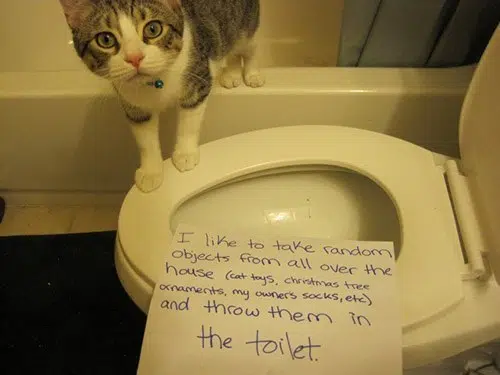 I like to take random
objects from all over the
house (cat toys, christmas tree
ornaments, my owners socks, etc)
and throw them in
the toilet.